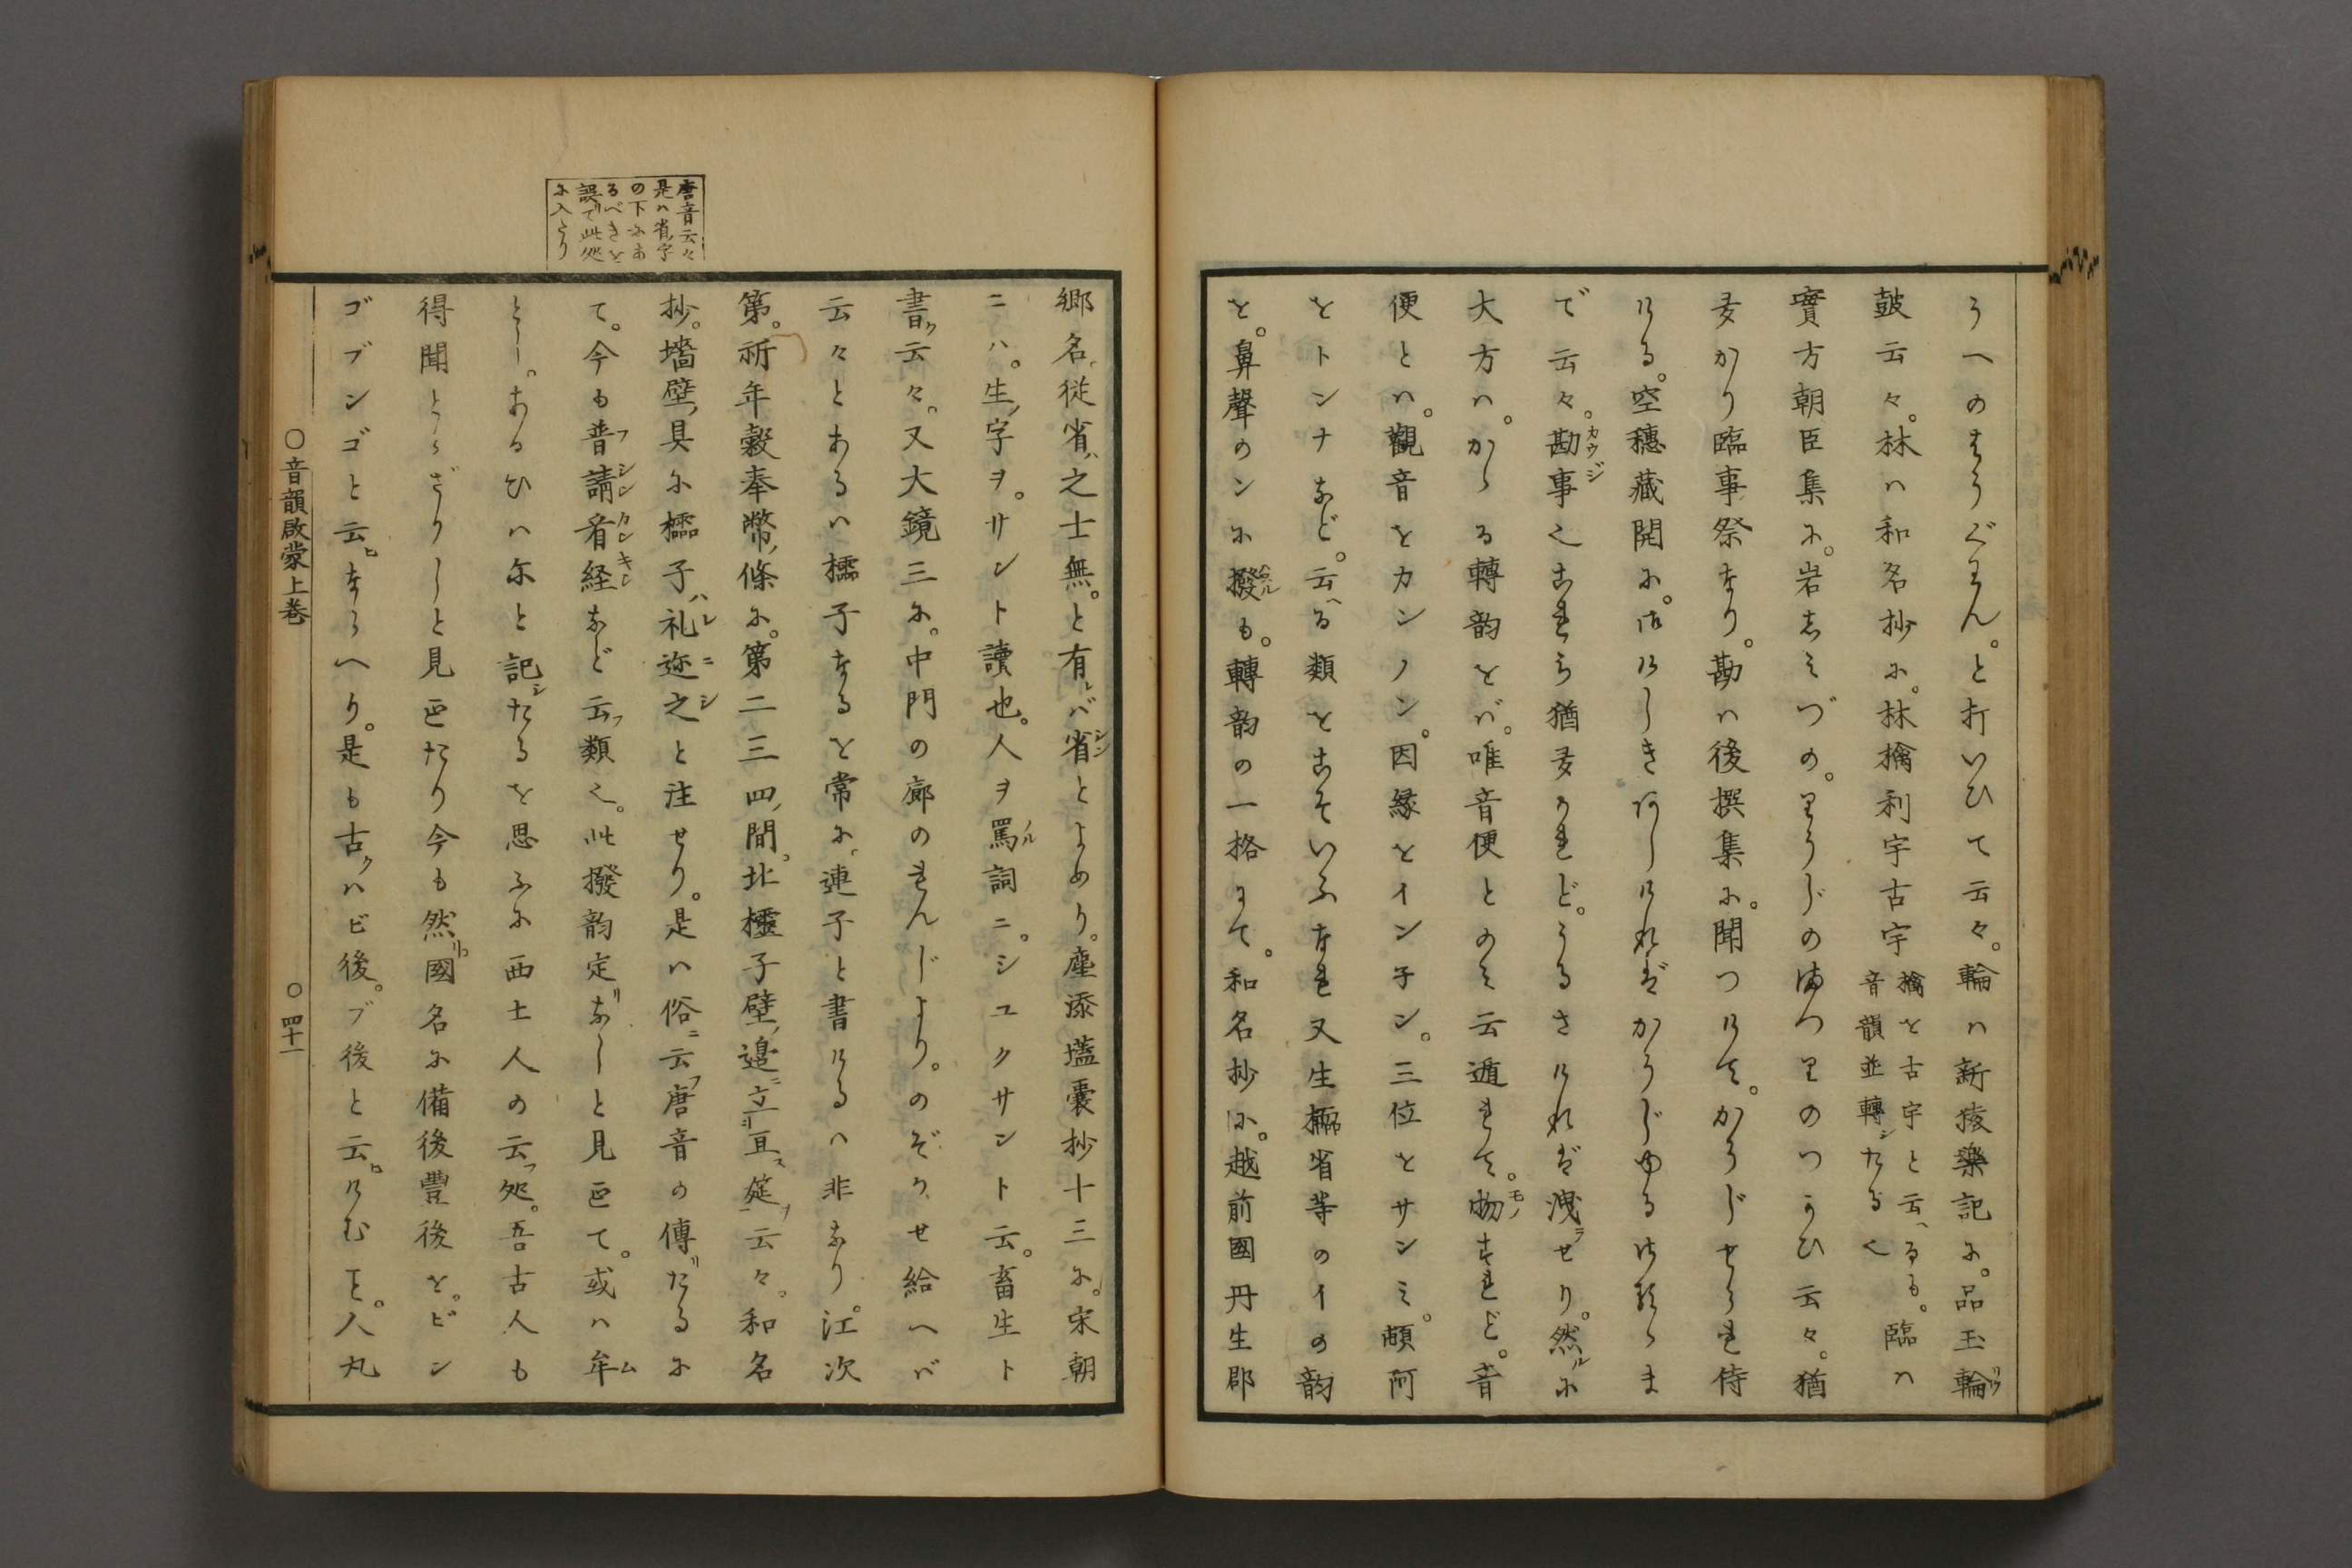 うへのまうぐさん。と打いひて云々。輪ハ新猿樂記に。品玉輪リウ
皷云々。林ハ和名抄に。林檎利宇古宇 檎を古宇と云へるも。臨ハ
音韻並轉シたる也
實方朝臣集に。岩志みづの。里うじの満つ里のつかひ云々。猶
多かり臨事祭なり。勘ハ後撰集に。聞つけて。かうじせられ侍
ける。空穗藏開に。
で云々。勘事カウジ也これら猶多かれど。うるさければ洩ラせり。然ルに
大方ハ。かゝる轉韵をバ。唯音便とのみ云遁れて。物モノすれど。音
便とハ。觀音をカンノン。因縁をインネン。三位をサンミ。頓阿
をトンナなど。云へる類をこそいふなれ又生櫺省等のイの韵
を。鼻聲のンに撥ハヌルも。轉韵の一格にて。和名抄に。越前國丹生郡
郷名。從省ハ之士無。と有レバ省シンとよめり。塵添壒囊抄十三に。宋朝
ニハ。生ノ字ヲ。サント讀也。人ヲ罵ノル詞ニ。シユクサント云。畜生ト
書ク云々。又大鏡三に。中門の廊のれんじより。のぞかせ給へバ
云々とあるハ櫺子なるを常に。連子と書けるハ非なり。江次
第。祈年穀奉幣ノ條に。第二三四ノ間。北櫺子壁ノ邉ニ立テ亘ス筵ヲ云々。和名
抄。墻壁ノ具に櫺子ハ礼レ迩ニ之シと注せり。是ハ俗ニ云フ唐音の傳リたるに
て。今も普フ請シン看カン経キンなど云フ類也。此撥韵定リなしと見えて。或ハ牟ム
とし。あるひハ尓と記シたるを思ふに西土人の云フ処。吾古人も
得聞とゝざりしと見えたり今も然リ。國名に備後豐後を。ビン
ゴブンゴと云ヒならへり。是も古クハビ後。ブ後と云ヒけむを。人丸
唐音云々
是ハ省ノ字
の下にあ
るべきを
誤て此処
に入たり
○音韻啟蒙上巻 ○四十一